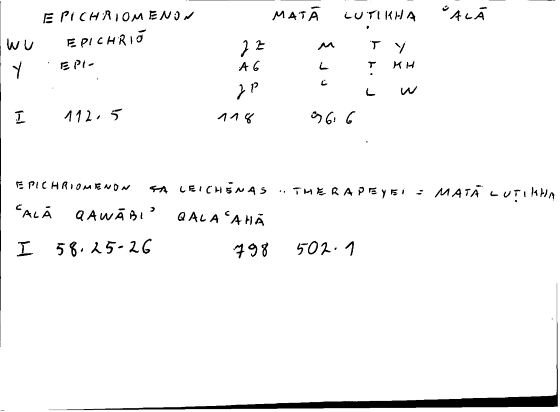 EPICHRIOMENON MATĀ LUṬIKHA ʿALĀ
WU EPICHRIŌ JZ M Ṭ Y
Y EPI- AG L Ṭ KH
JP ʿ L W
I 112.5 118 96.6
EPICHRIOMENON LEICHĒNAS .. THERAPEYEI = MATĀ LUṬIKHA
ʿALĀ QAWĀBIʾ QALAʿAHĀ
I 58.25-26 798 502.1